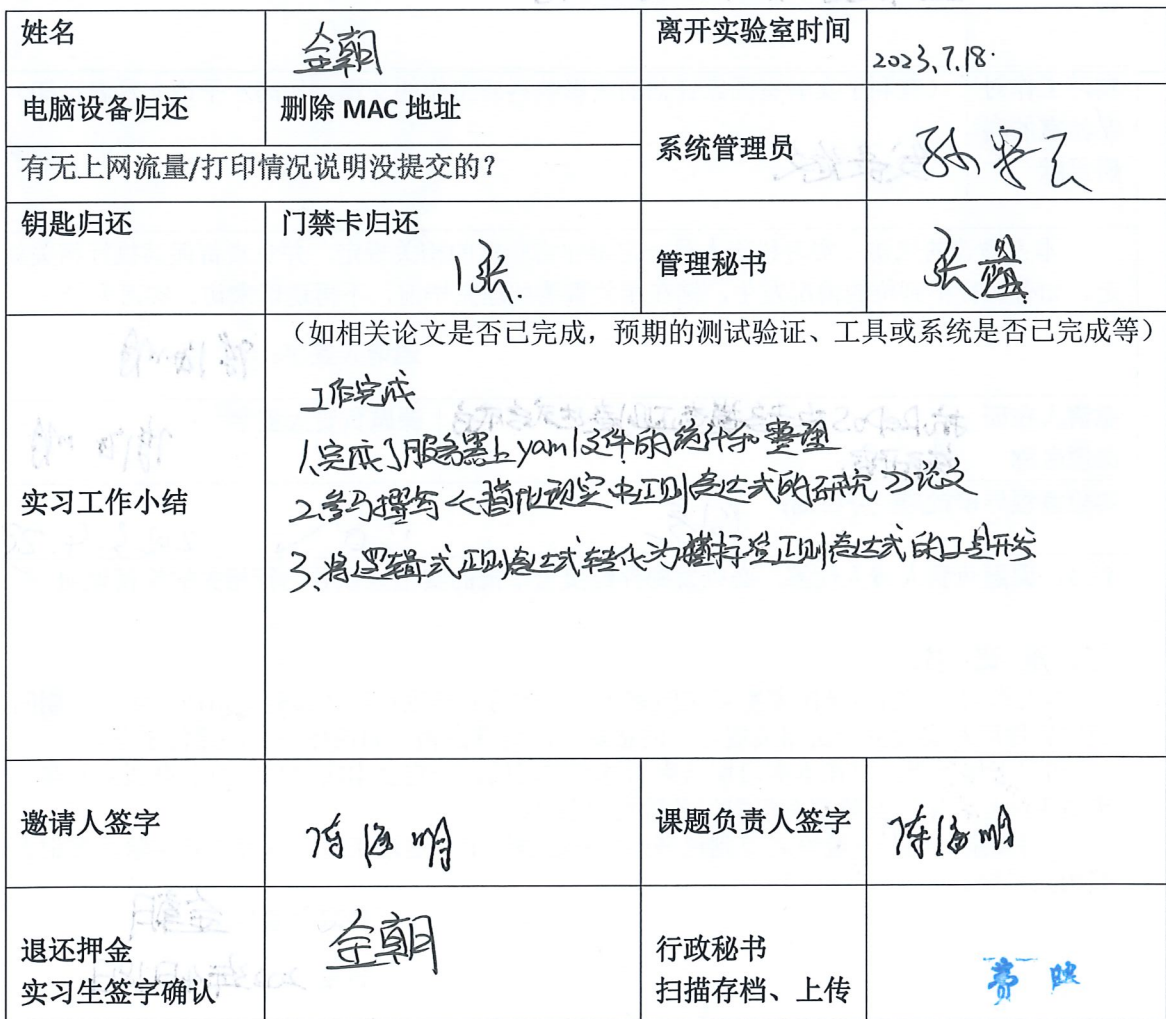 姓名 金朝 离开实验室时间 2023.7.18.
电脑设备归还 删除 MAC 地址
系统管理员
有无上网流量/打印情况说明没提交的？
钥匙归还 门禁卡归还 1张. 管理秘书 张
（如相关论文是否已完成，预期的测试验证、工具或系统是否已完成等）
工作完成
1.完成了服务器上yaml文件的统计和整理
实习工作小结
2.参与撰写<<中正则表达式的研究>>论文
3.将逻辑式正则表达式转化为正则表达式的工具开发
邀请人签字 陈海明 课题负责人签字 陈海明
退还押金 金朝 行政秘书
实习生签字确认 扫描存档、上传 费